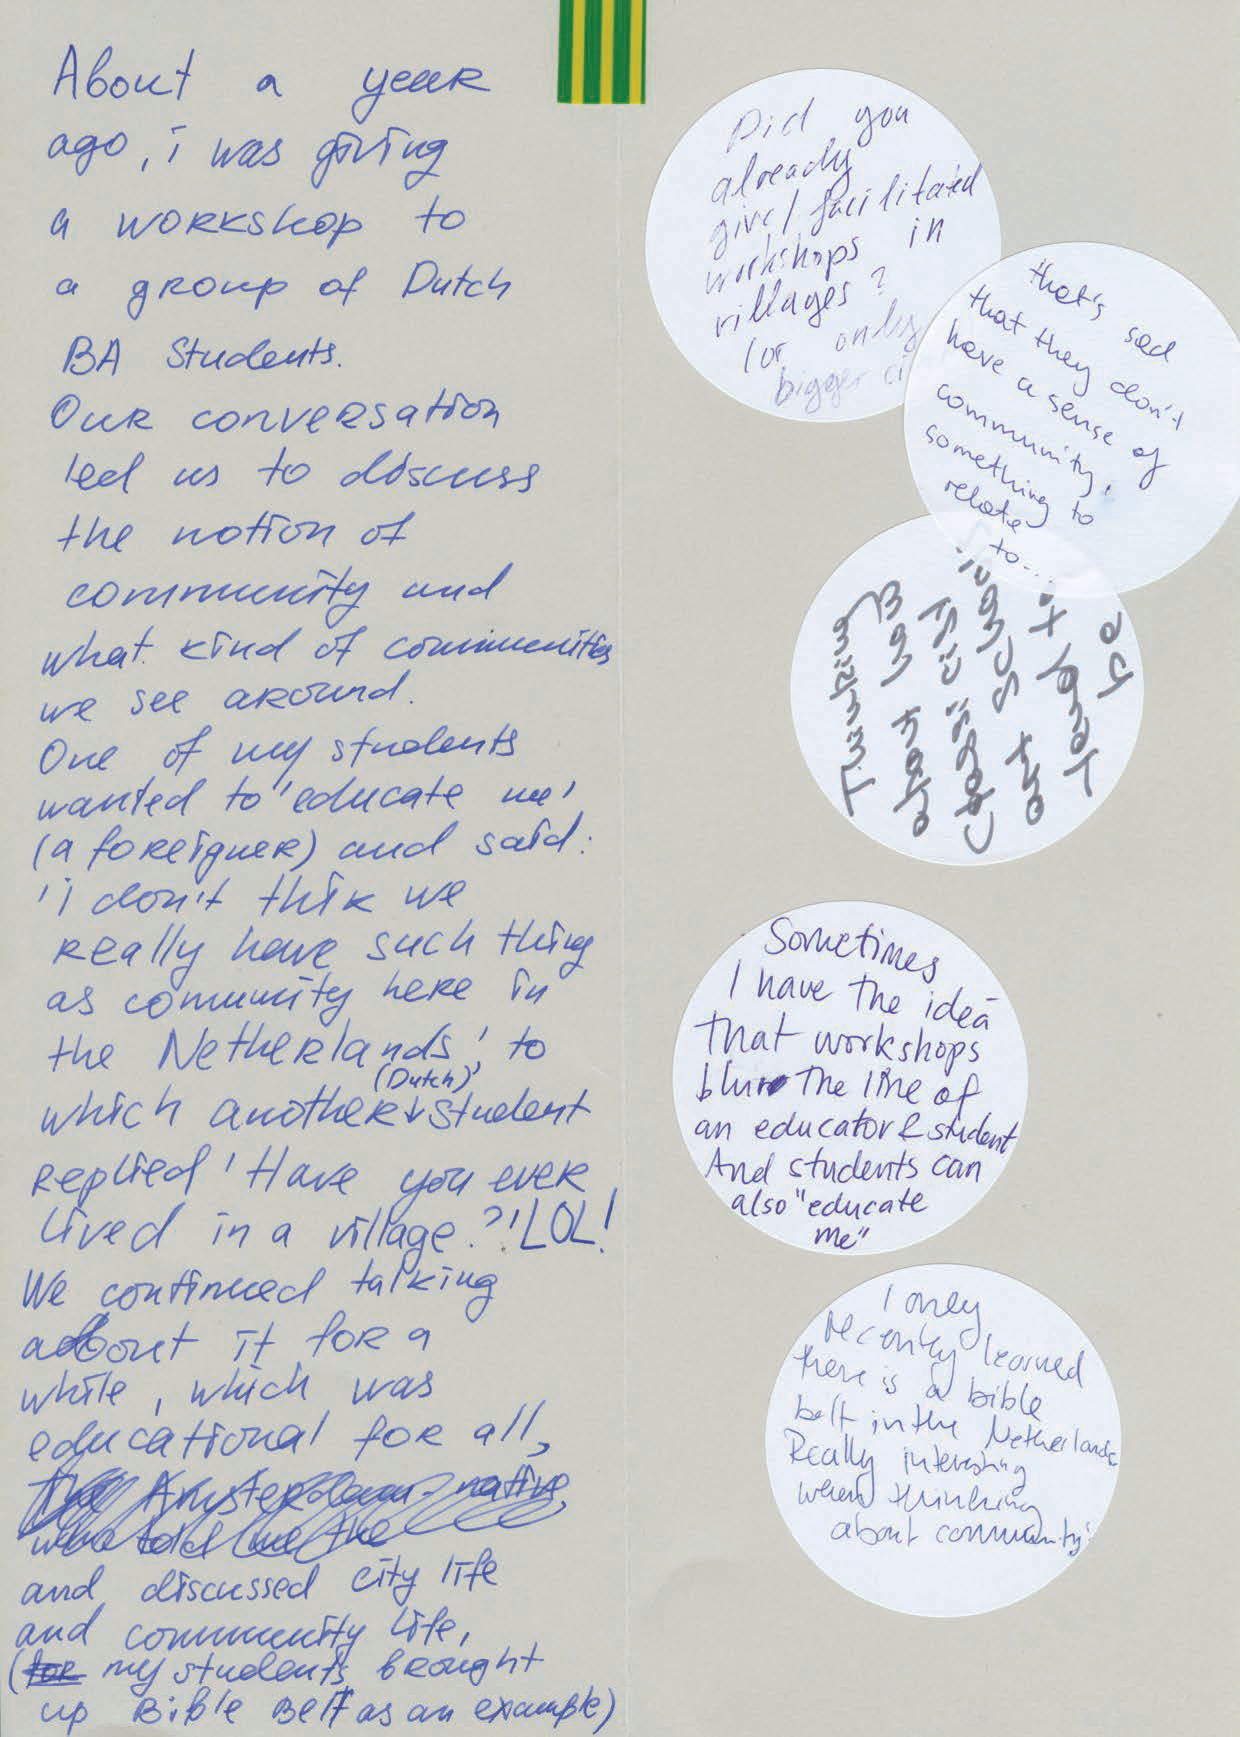 About a year
ago, i was giving
a workshop to
a group of Dutch
BA Students.
Our conversation
led us to discuss
the notion of
community and
what kind of communities
we see around.
One of my students
wanted to 'educate me'
(a foreigner) and said:
'i don't thik we
really have such thing
as community here in
the Netherlands', to
(Dutch)
which another student
replied 'Have you ever
lived in a village?' LOL!
We continued talking
about it for a
while, which was
educational for all,
the Amsterdam-native,
who told me the
and discussed city life
and community life,
(for my students brought
up Bible Belt as an example)
Did you
already
give/facilitated
workshops in
villages?
(or only
bigger ci
that's sad
that they don't
have a sense of
community,
something to
relate
to...
Thinking
be
Sometimes
I have the idea
that workshops
blur the line of
an educator & student
And students can
also "educate
me"
I only
recently learned
there is a bible
belt in the Netherlands
Really interesting
when thinking
about community